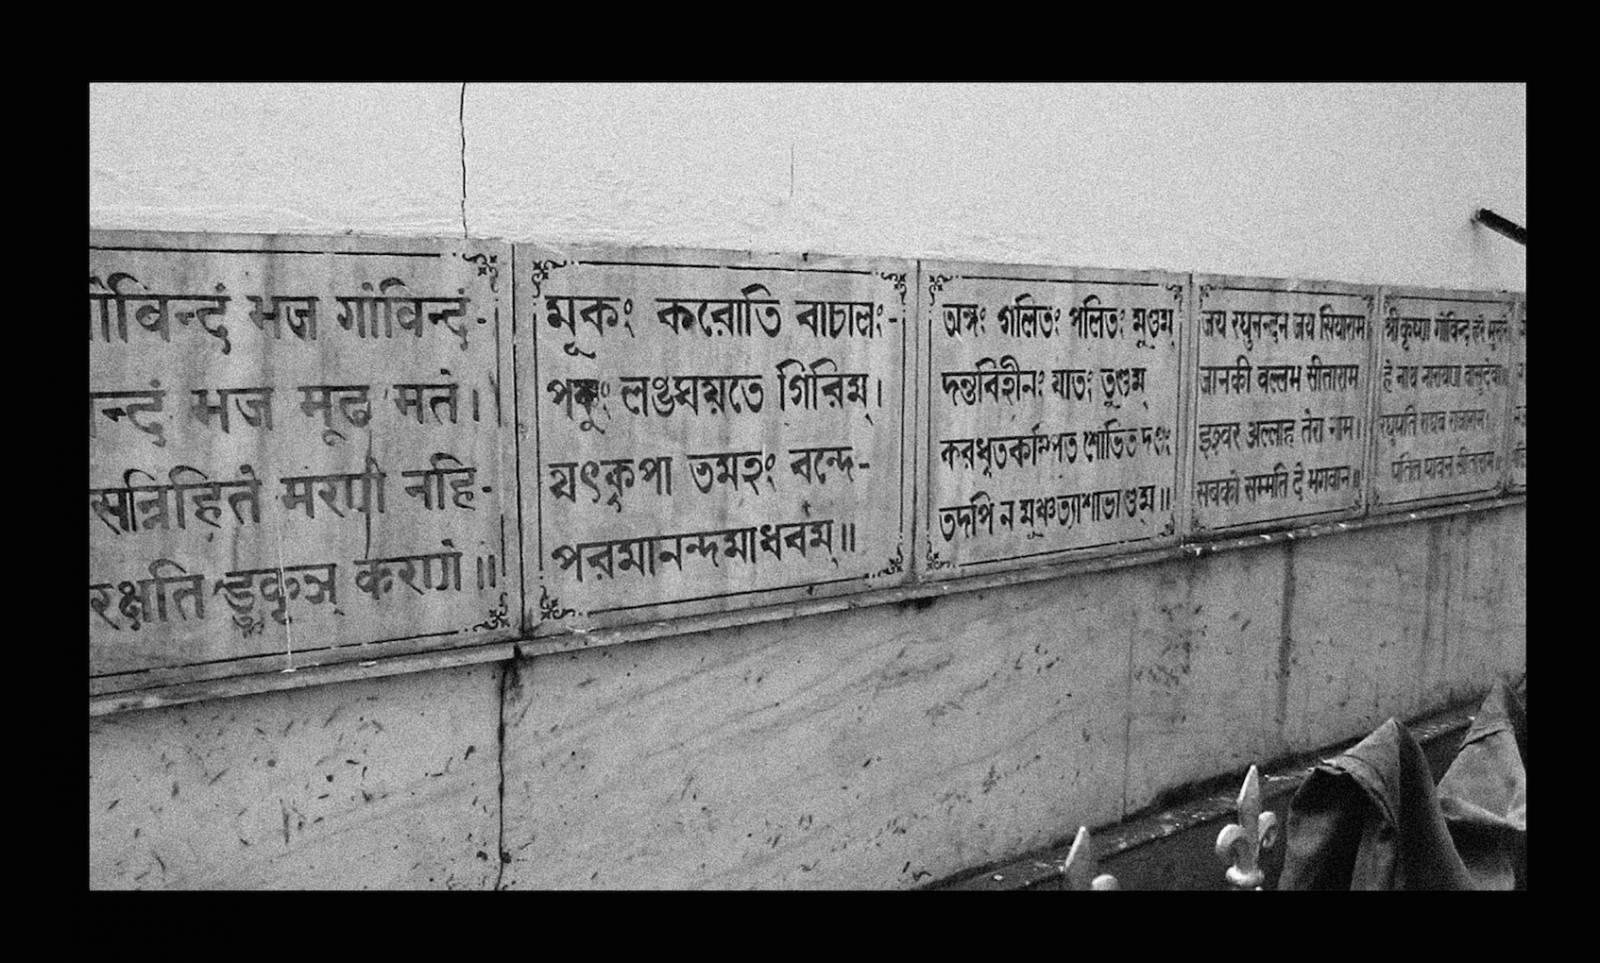 गोविन्दं भज गोविन्दं-
भज मूढ मते।
सन्निहिते मरणे नहि-
रक्षति डुकृञ् करणे॥
মূকং করোতি বাচালং-
পঙ্গুং লঙ্ঘয়তে গিরিম্।
য়ৎকৃপা তমহং বন্দে-
পরমানন্দমাধবম্॥
অঙ্গং গলিতং পলিতং মুণ্ডম্
দন্তবিহীনং যাতং তুণ্ডম্
করধৃতকম্পিত শোভিত দণ্ডং
তদপি ন মুঞ্চত্যাশাভাণ্ডম্॥
जय रघुनन्दन जय सियाराम
जानकी वल्लभ सीताराम
इश्वर अल्लाह तेरा नाम।
सबको सम्मति दे भगवान॥
श्रीकृष्ण गोविन्द हरे मुरारे
हे नाथ नारायण वासुदेव॥
रघुपति राघव राजाराम।
पतित पावन सीताराम॥